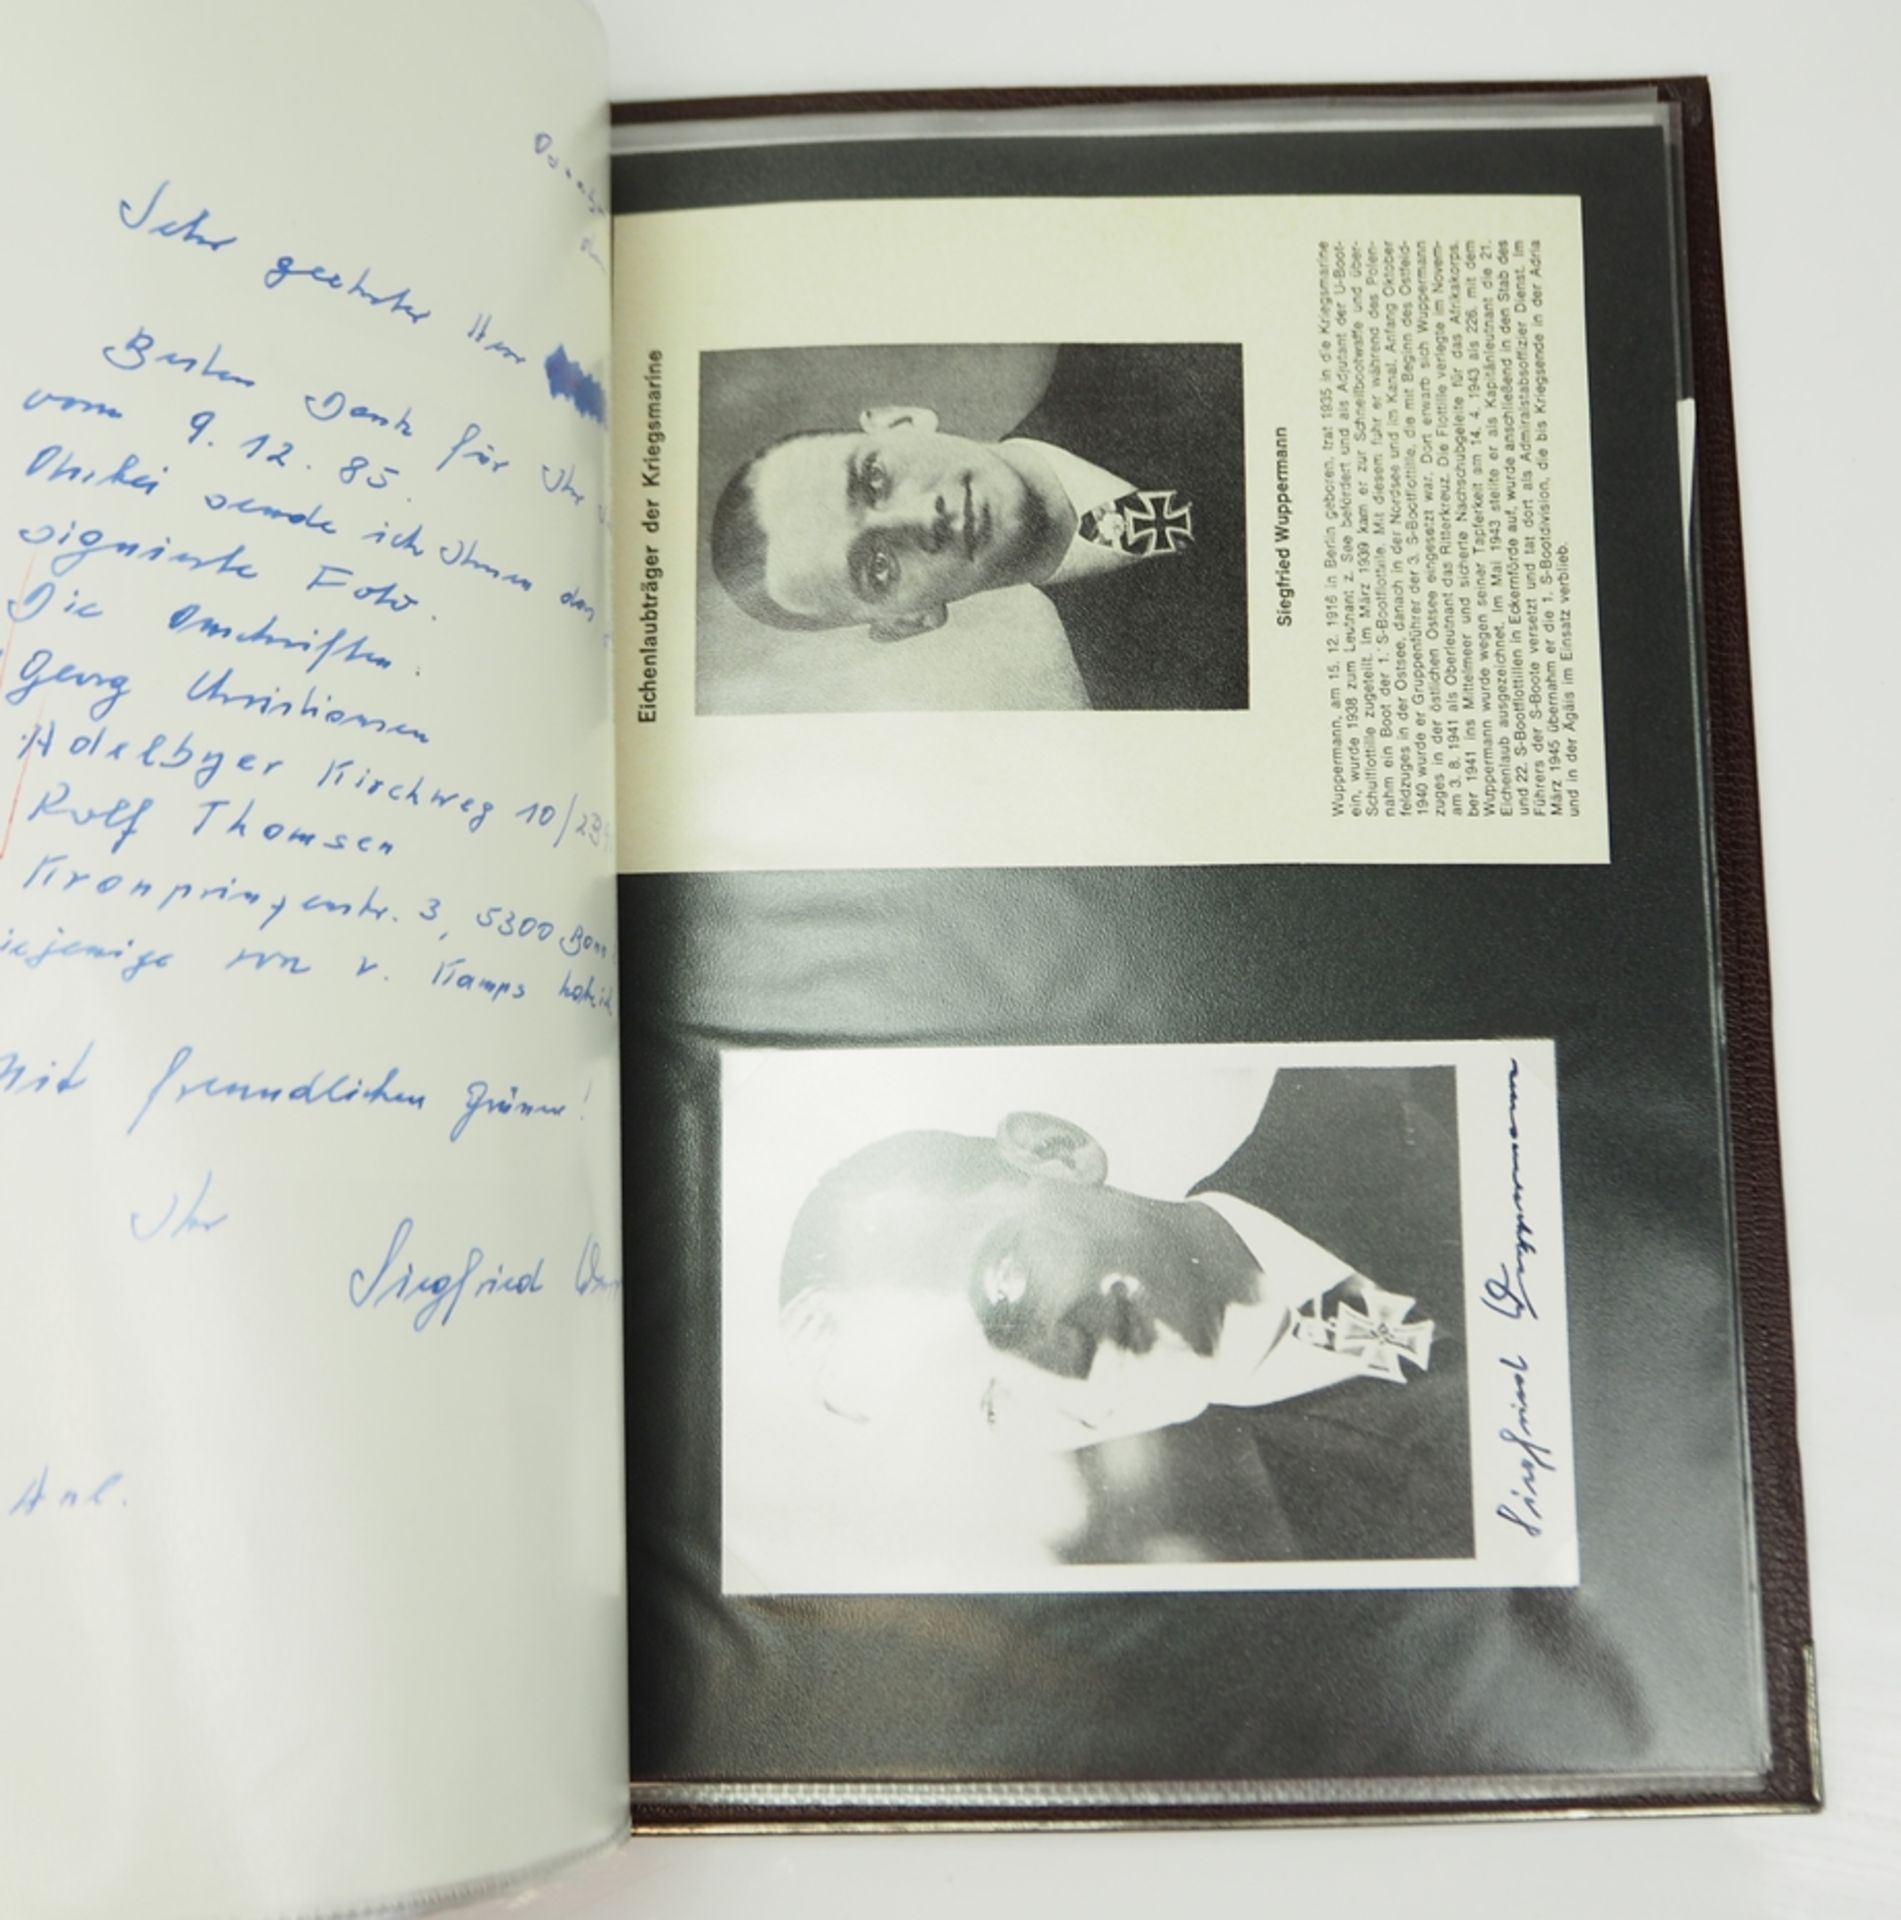 Sehr geehrter Herr
Besten Dank für Ihr
vom 9. 12. 85.
Anbei sende ich Ihnen das
signierte Foto.
Die Anschriften:
Georg Christiansen
Adelbyer Kirchweg 10/
Rolf Thomsen
Kronprinzenstr. 3, 5300 Bonn
von v. Kamps habe ich
Mit freundlichen Grüssen!
Ihr
Siegfried
Anl.
Eichenlaubträger der Kriegsmarine
Siegfried Wuppermann
Wuppermann, am 15. 12. 1916 in Berlin geboren, trat 1935 in die Kriegsmarine
ein, wurde 1938 zum Leutnant z. See befördert und als Adjutant der U-Boot-
Schulflottille zugeteilt. Im März 1939 kam er zur Schnellbootwaffe und über-
nahm ein Boot der 1. S-Bootflottille. Mit diesem fuhr er während des Polen-
feldzuges in der Ostsee, danach in der Nordsee und im Kanal. Anfang Oktober
1940 wurde er Gruppenführer der 3. S-Bootflottille, die mit Beginn des Ostfeld-
zuges in der östlichen Ostsee eingesetzt war. Dort erwarb sich Wuppermann
am 3. 8. 1941 als Oberleutnant das Ritterkreuz. Die Flottille verlegte im Novem-
ber 1941 ins Mittelmeer und sicherte Nachschubgeleite für das Afrikakorps.
Wuppermann wurde wegen seiner Tapferkeit am 14. 4. 1943 als 226. mit dem
Eichenlaub ausgezeichnet. Im Mai 1943 stellte er als Kapitänleutnant die 21.
und 22. S-Bootflottillen in Eckernförde auf, wurde anschließend in den Stab des
Führers der S-Boote versetzt und tat dort als Admiralstabsoffizier Dienst. Im
März 1945 übernahm er die 1. S-Bootdivision, die bis Kriegsende in der Adria
und in der Ägäis im Einsatz verblieb.
Siegfried Wuppermann